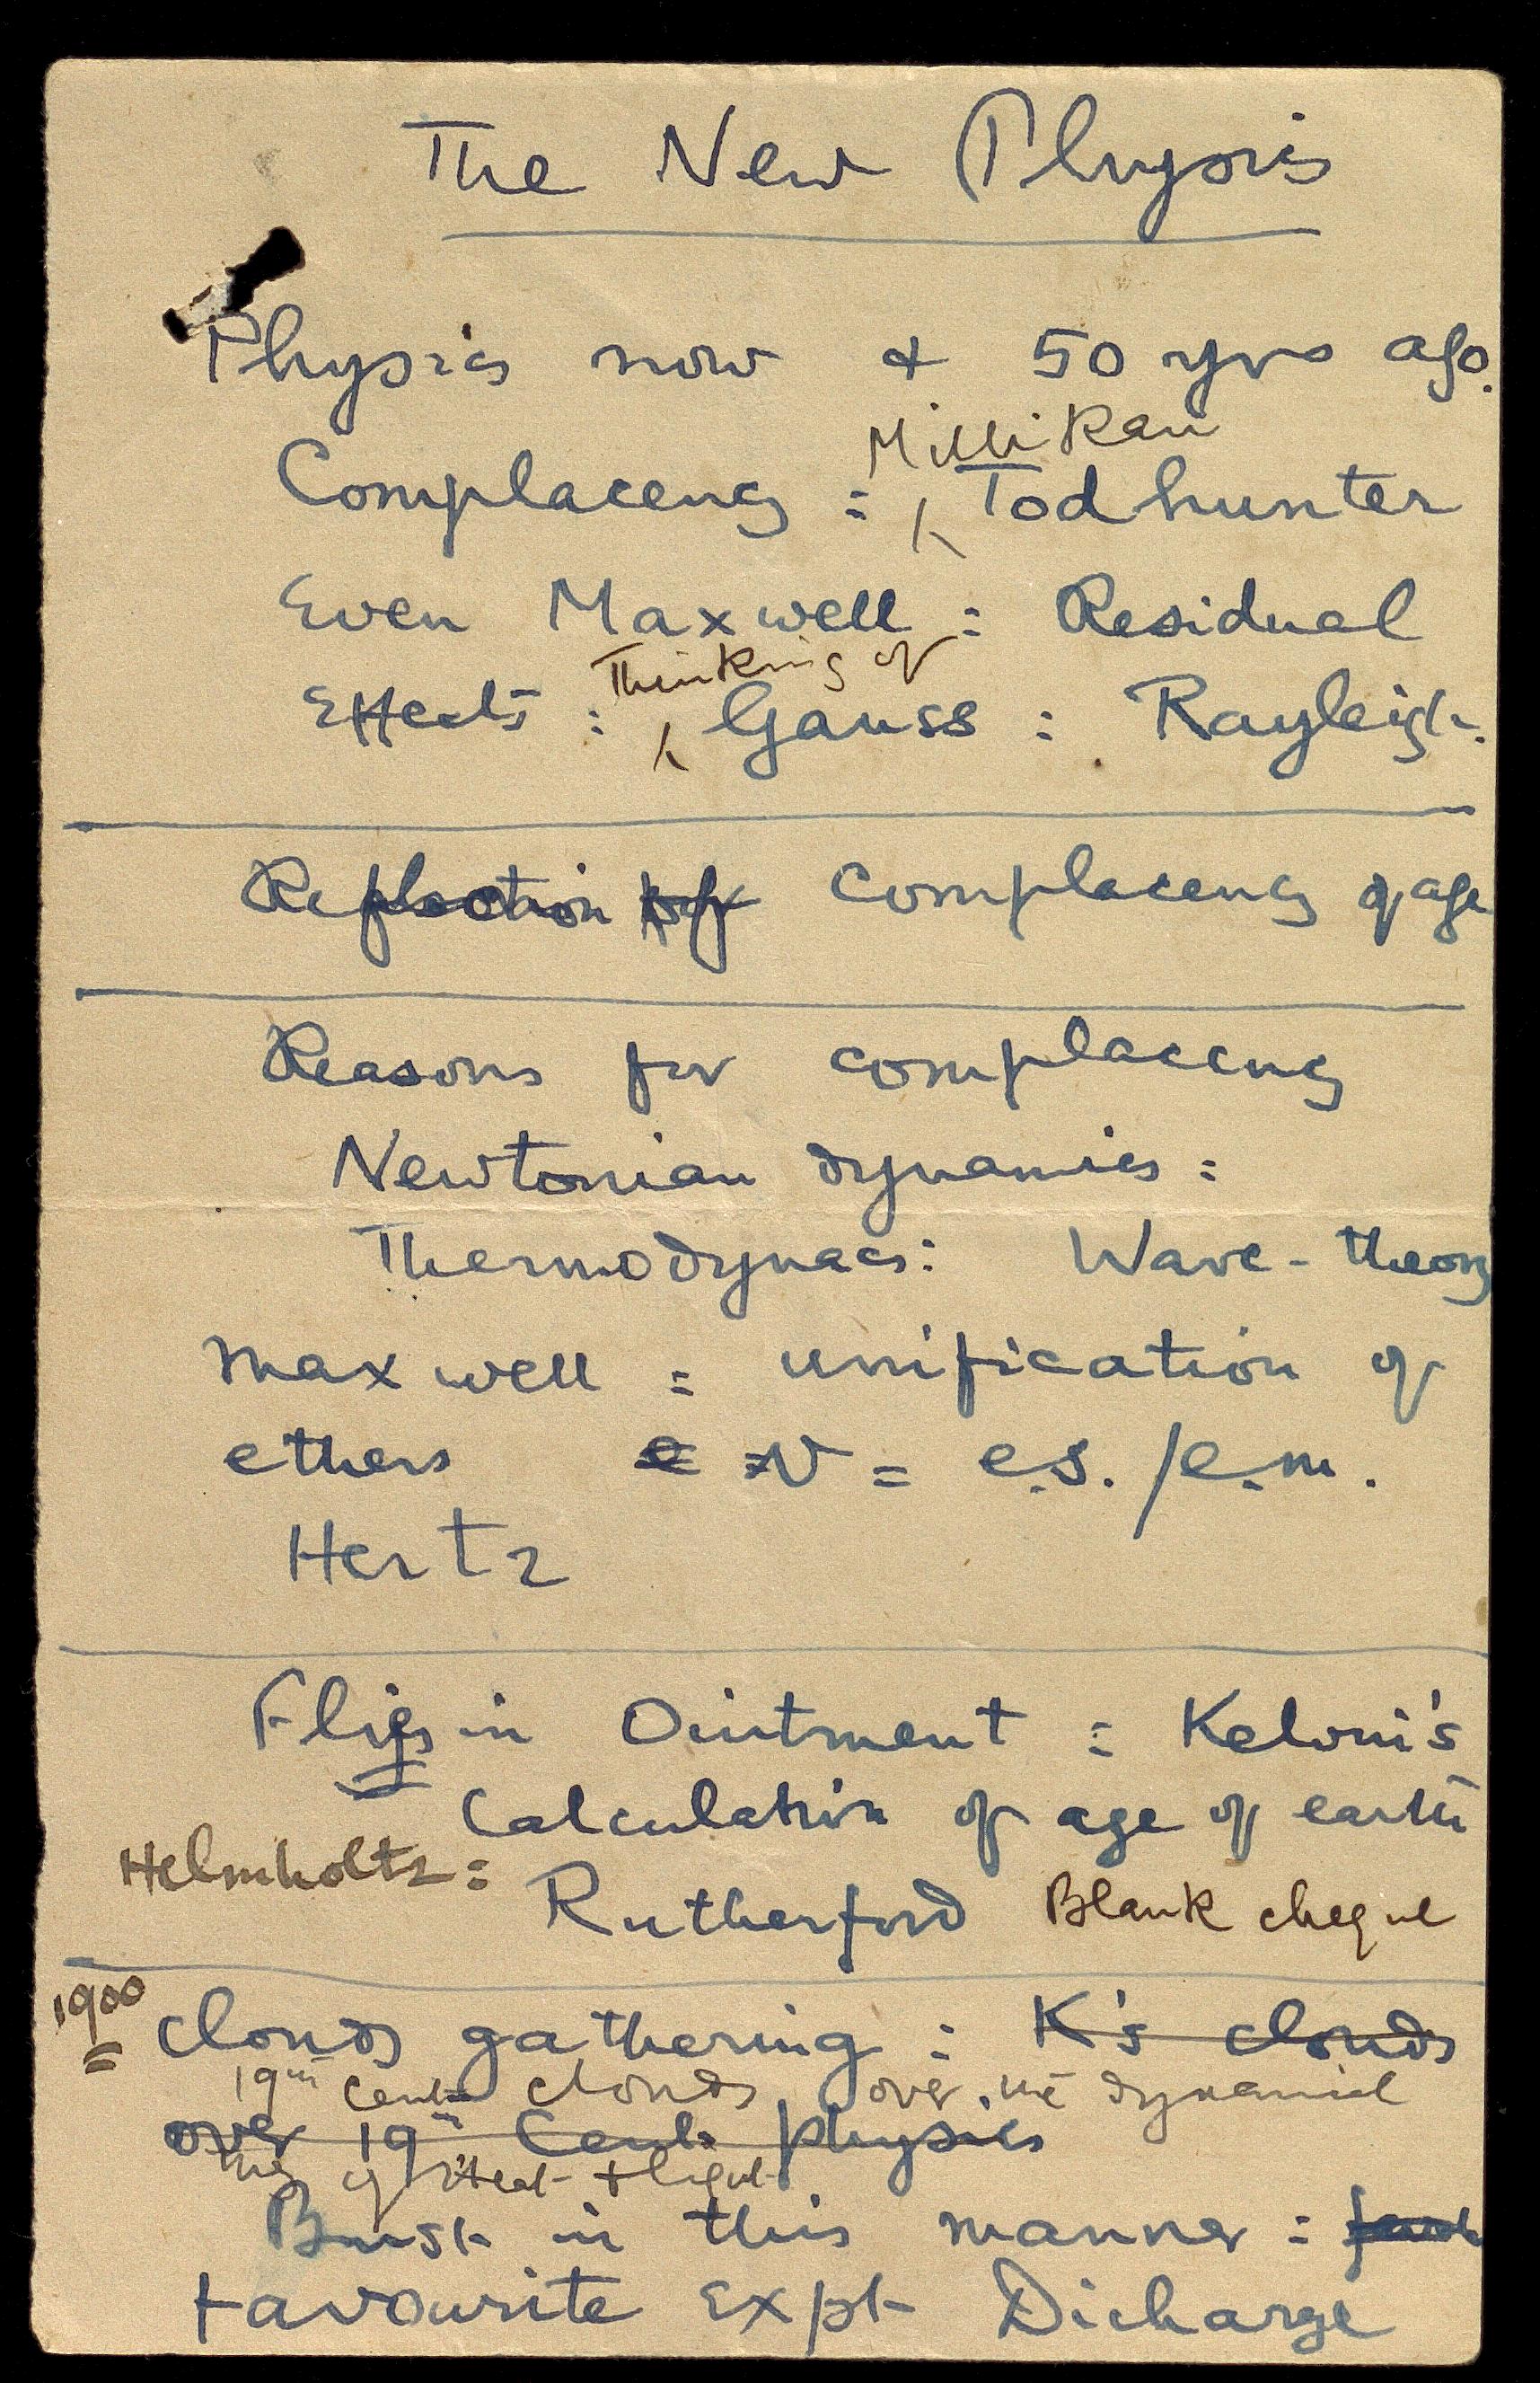 The New Physics
Physics now & 50 yrs ago.
Millikan
Complacency : Todhunter
Even Maxwell : Residual
Thinking of
Effects : Gauss : Rayleigh.
Reflection of complacency of age
Reasons for complacency
Newtonian dynamics :
Thermodynacs : Wave-theory
Maxwell : unification of
ethers e v = e.s./e.m.
Hertz
Flies in Ointment : Kelvin's
Calculation of age of earth
Helmholtz :
Rutherford Blank cheque
1900
Clouds gathering : K's clouds
19th Cent clouds over the dynamical
over 19th Cent. physics
thy of Heat & light
Burst in this manner :
Favourite Expt Dicharge